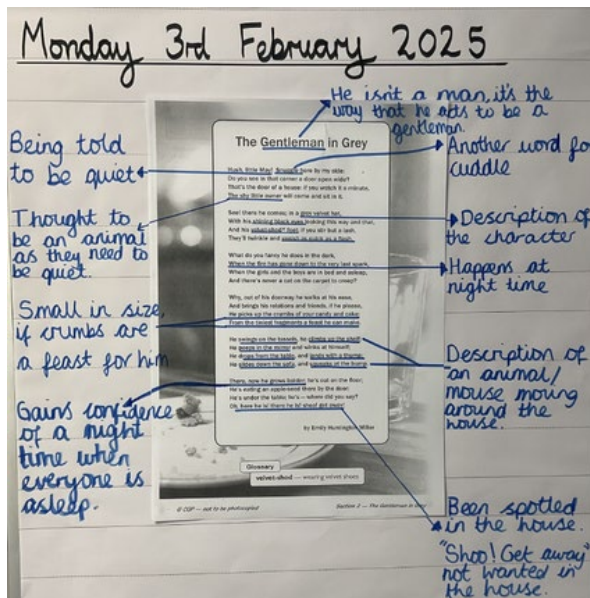 Monday 3rd February 2025
He isn't a man, it's the
way that he acts to be a
gentleman.
Being told
to be quiet
Another word for
cuddle
Thought to
be an animal
as they need to
be quiet.
Description of
the character
Happens at
night time
Small in size,
if crumbs are
a feast for him
Description of
an animal/
mouse moving
around the
house.
Gains confidence
of a night
time when
everyone is
asleep.
Been spotted
in the house.
"Shoo! Get away"
not wanted in
the house.
The Gentleman in Grey
Hush, little May! Snuggle here by my side:
Do you see in that corner a door open wide?
That's the door of a house: if you watch it a minute,
The shy little owner will come and sit in it.
See! there he comes; in a grey velvet hat,
With his shining black eyes looking this way and that,
And his velvet-shod feet; if you stir but a lash,
They'll twinkle and vanish as quick as a flash.
What do you fancy he does in the dark,
When the fire has gone down to the very last spark,
When the girls and the boys are in bed and asleep,
And there's never a cat on the carpet to creep?
Why, out of his doorway he walks at his ease,
And brings his relations and friends, if he please,
He picks up the crumbs of your candy and cake:
From the tiniest fragments a feast he can make.
He swings on the tassels, he climbs up the shelf;
He peeps in the mirror and winks at himself;
He drops from the table, and lands with a thump,
He slides down the sofa, and squeaks at the bump.
There, now he grows bolder; he's out on the floor;
He's eating an apple-seed there by the door;
He's under the table; he's – where did you say?
Oh, here he is! there he is! shoo! get away!
by Emily Huntington Miller
Glossary
velvet-shod — wearing velvet shoes
© CGP — not to be photocopied
Section 2 — The Gentleman in Grey